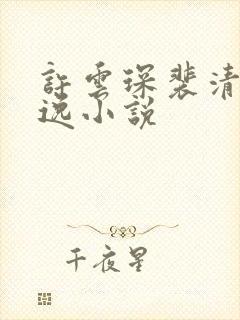 許雲琛裴清
逸小說
千夜星